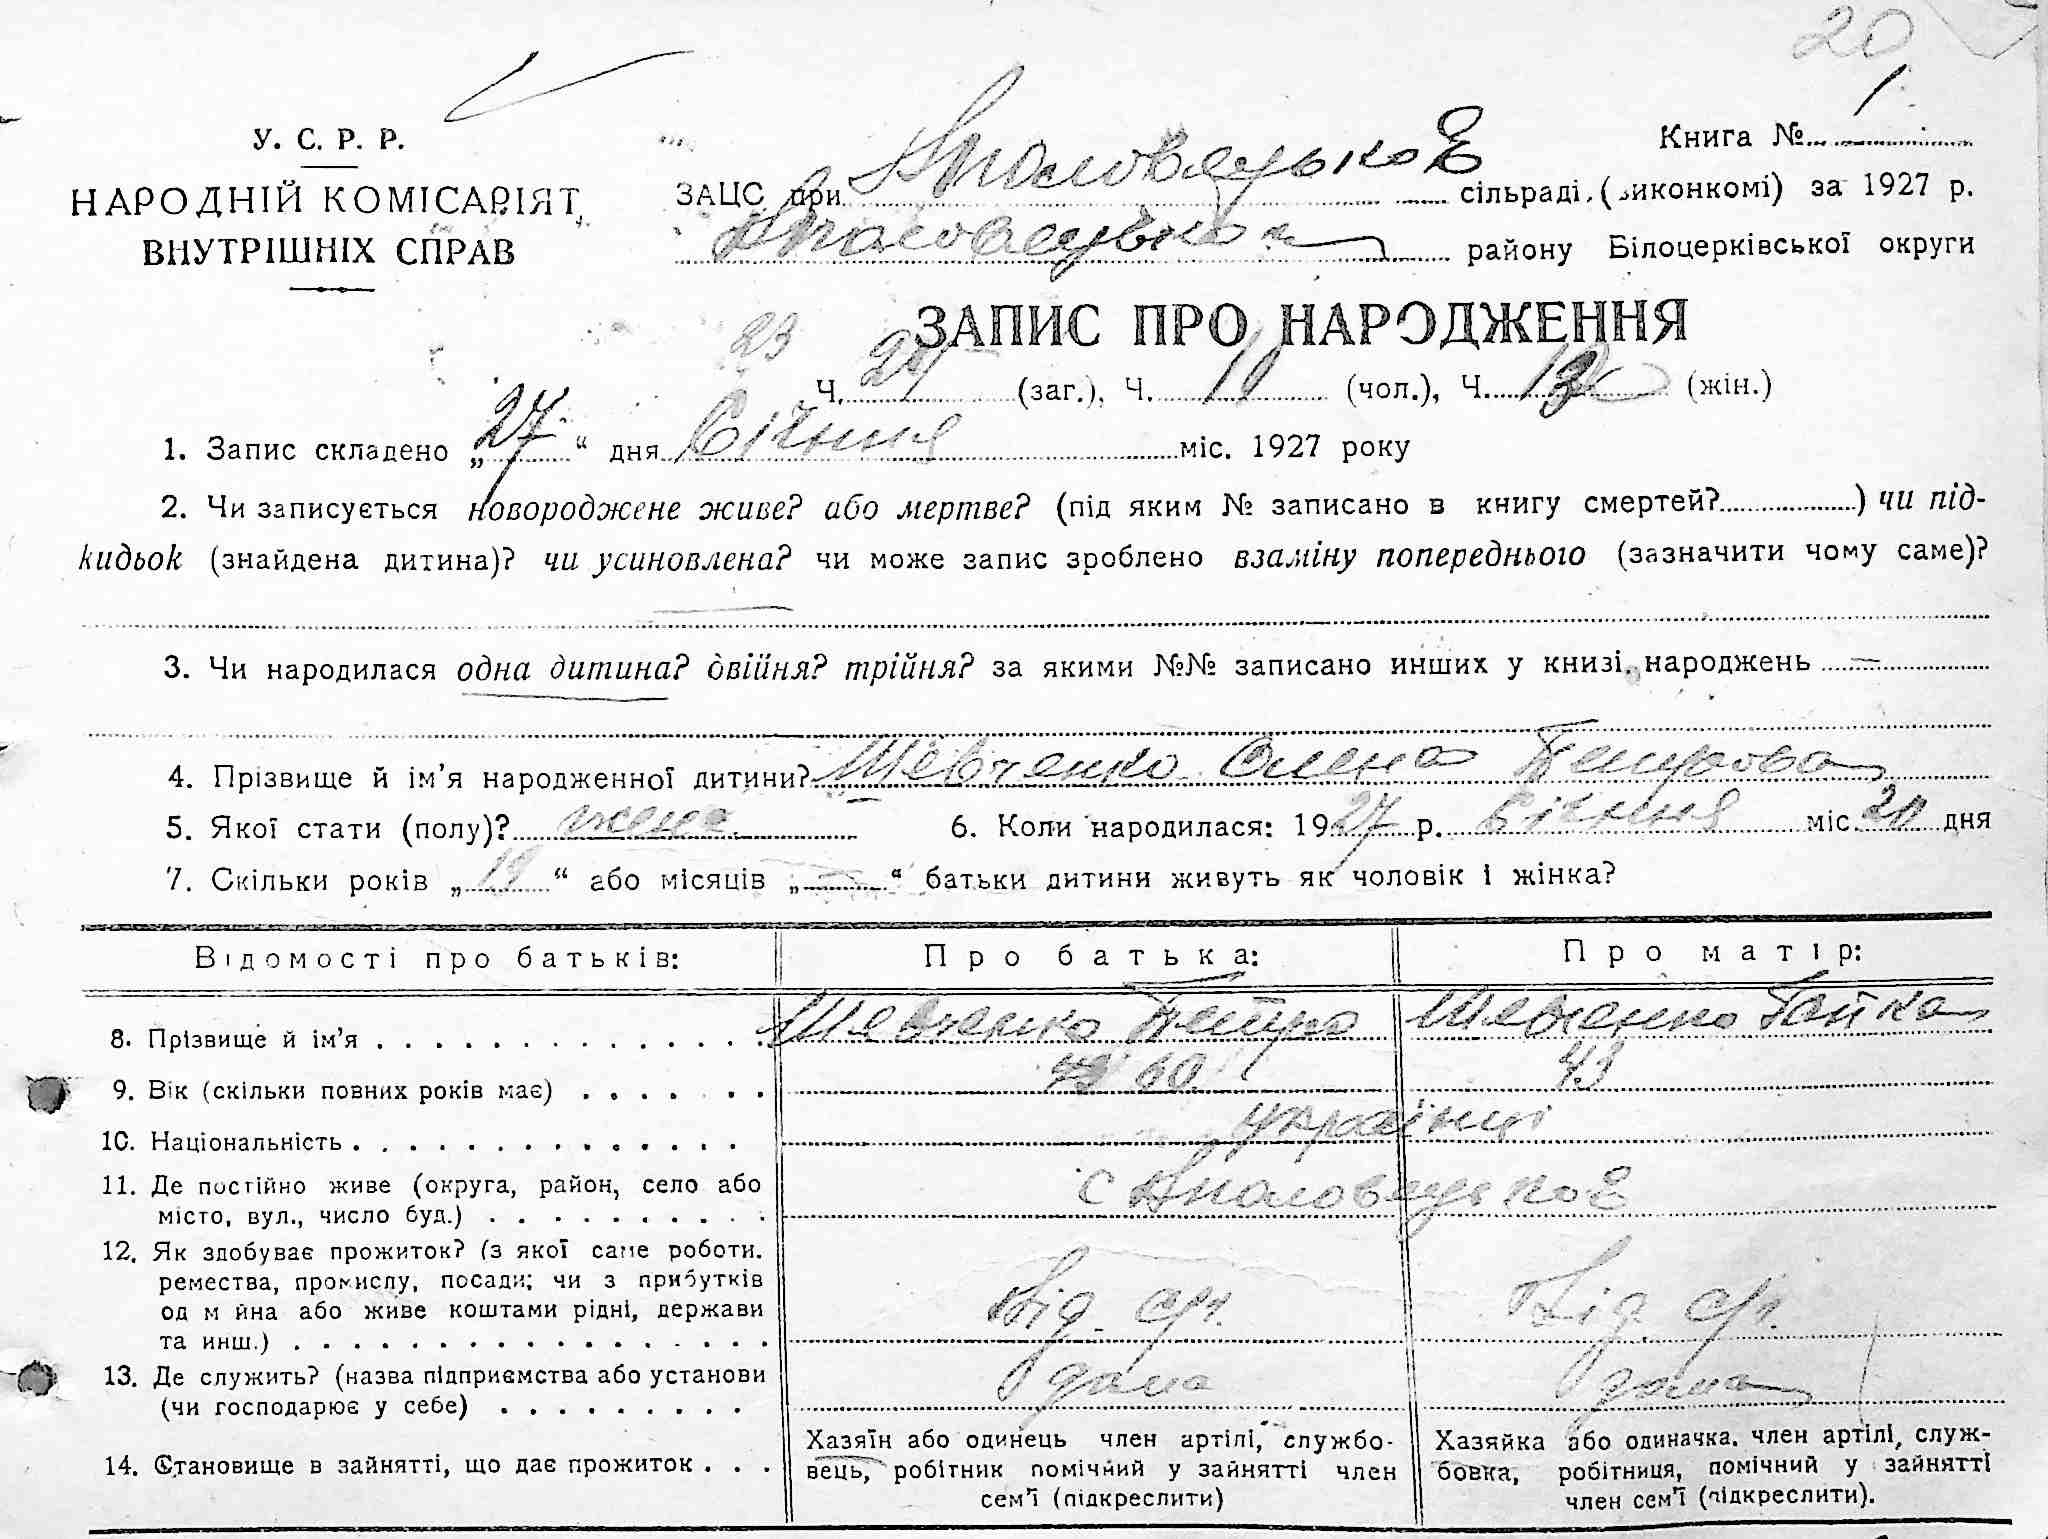 20
У. С. Р. Р.
НАРОДНІЙ КОМІСАРІЯТ
ВНУТРІШНІХ СПРАВ
Книга № 1
ЗАЦС при сільраді, (виконкомі) за 1927 р.
району Білоцерківської округи
ЗАПИС ПРО НАРОДЖЕННЯ
23
Ч. 24 (заг.), Ч. 11 (чол.), Ч. 13 (жін.)
1. Запис складено „27“ дня Січня міс. 1927 року
2. Чи записується новороджене живе? або мертве? (під яким № записано в книгу смертей? ) чи під-
кидьок (знайдена дитина)? чи усиновлена? чи може запис зроблено взаміну попереднього (зазначити чому саме)?
3. Чи народилася одна дитина? двійня? трійня? за якими №№ записано инших у книзі народжень —
4. Прізвище й ім’я народженної дитини? Шевченко Олена Петрова
5. Якої стати (полу)? жена 6. Коли народилася: 1927 р. Січня міс. дня
7. Скільки років „19“ або місяців „—“ батьки дитини живуть як чоловік і жінка?
Відомості про батьків: Про батька: Про матір:
8. Прізвище й ім’я Шевченко Петро Шевченко
9. Вік (скільки повних років має) 43
10. Національність українці
11. Де постійно живе (округа, район, село або
місто, вул., число буд.) с
12. Як здобуває прожиток? (з якої саме роботи,
ремества, промислу, посади; чи з прибутків
од майна або живе коштами рідні, держави
та инш.) Від с/г. Від с/г.
13. Де служить? (назва підприємства або установи
(чи господарює у себе) дома дома
14. Становище в зайнятті, що дає прожиток
Хазяїн або одинець член артілі, службо-
вець, робітник помічний у зайнятті член
сем’ї (підкреслити)
Хазяйка або одиначка, член артілі, служ-
бовка, робітниця, помічний у зайнятті
член сем’ї (підкреслити).